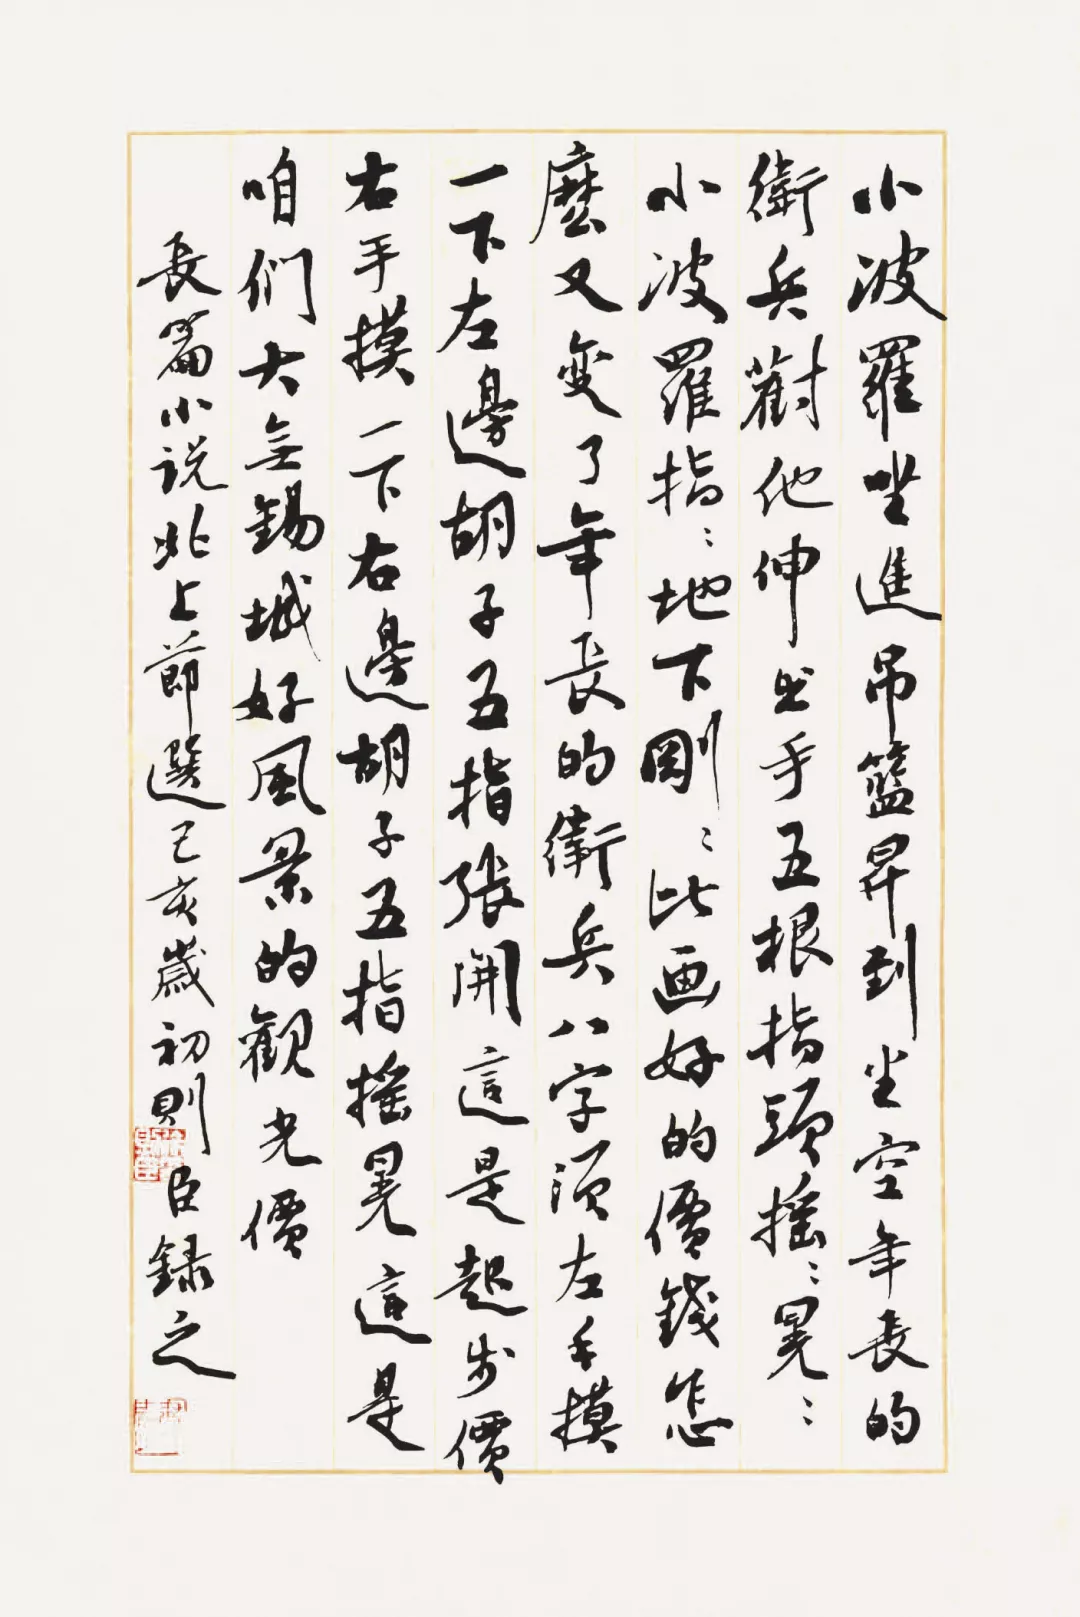 小波羅坐進吊籃昇到半空年長的
衛兵對他伸出手五根指頭摇：晃：
小波羅指：地下剛：比画好的價錢怎
麽又变了年長的衛兵八字須左手摸
一下左邊胡子五指張開這是起步價
右手摸一下右邊胡子五指摇晃這是
咱们大無錫城好風景的觀光價
長篇小说北上節選己亥歲初則臣録之